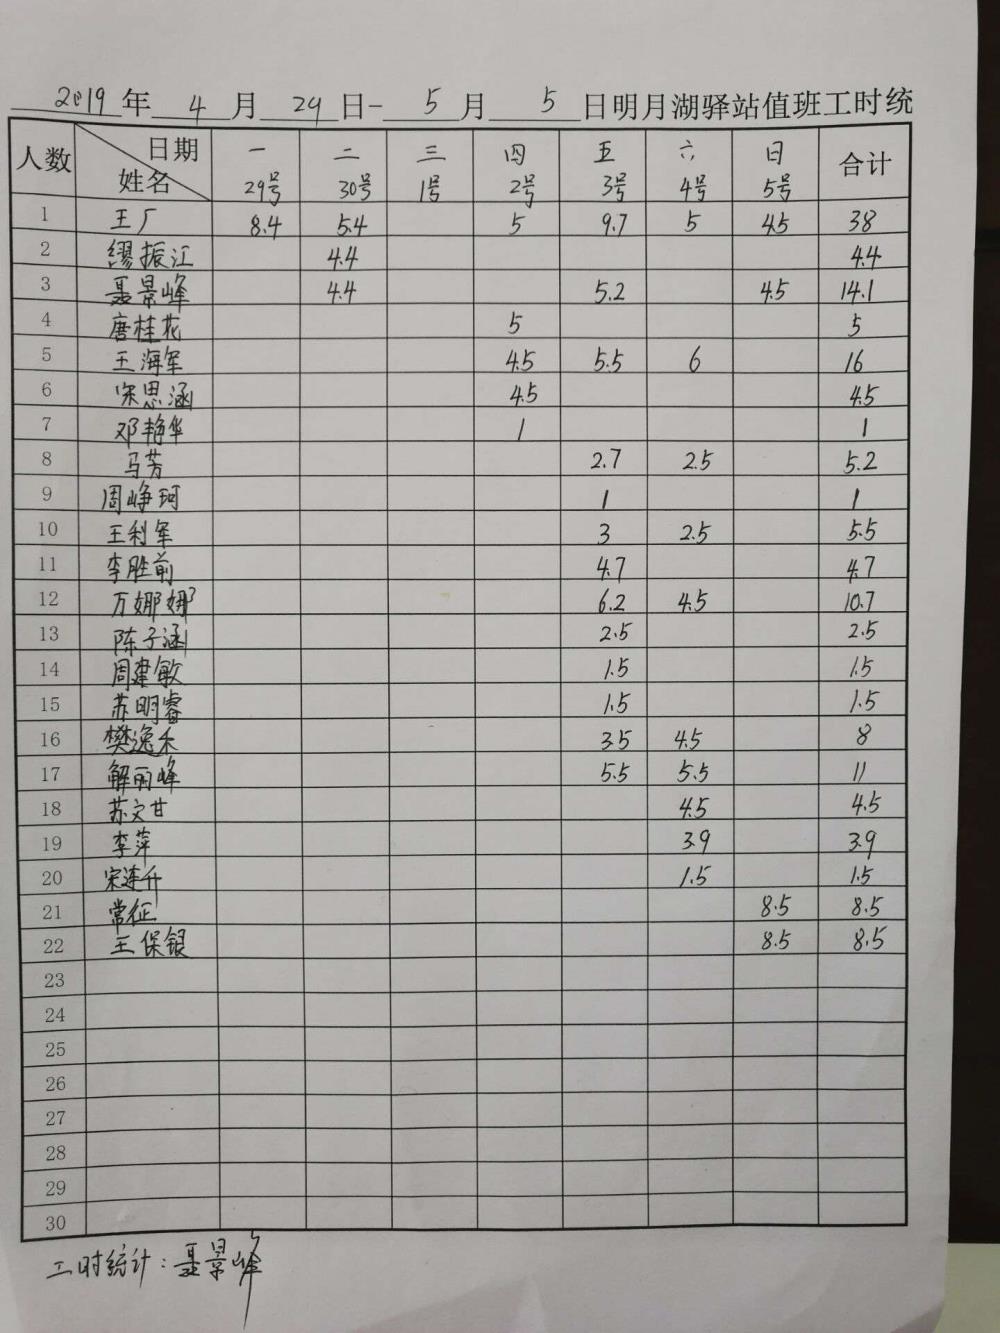 2019年 4 月 29 日- 5 月 5 日明月湖驿站值班工时统
人数 日期 姓名 一 29号 二 30号 三 1号 四 2号 五 3号 六 4号 日 5号 合计
1 王厂 8.4 5.4 5 9.7 5 4.5 38
2 缪振江 4.4 4.4
3 聂景峰 4.4 5.2 4.5 14.1
4 唐桂花 5 5
5 王海军 4.5 5.5 6 16
6 宋思涵 4.5 4.5
7 邓艳华 1 1
8 马芳 2.7 2.5 5.2
9 周峥珂 1 1
10 王利军 3 2.5 5.5
11 李胜前 4.7 4.7
12 万娜娜 6.2 4.5 10.7
13 陈子涵 2.5 2.5
14 周建敏 1.5 1.5
15 苏明睿 1.5 1.5
16 樊逸禾 3.5 4.5 8
17 解丽峰 5.5 5.5 11
18 苏文甘 4.5 4.5
19 李萍 3.9 3.9
20 宋连升 1.5 1.5
21 常征 8.5 8.5
22 王保银 8.5 8.5
23
24
25
26
27
28
29
30
工时统计：聂景峰